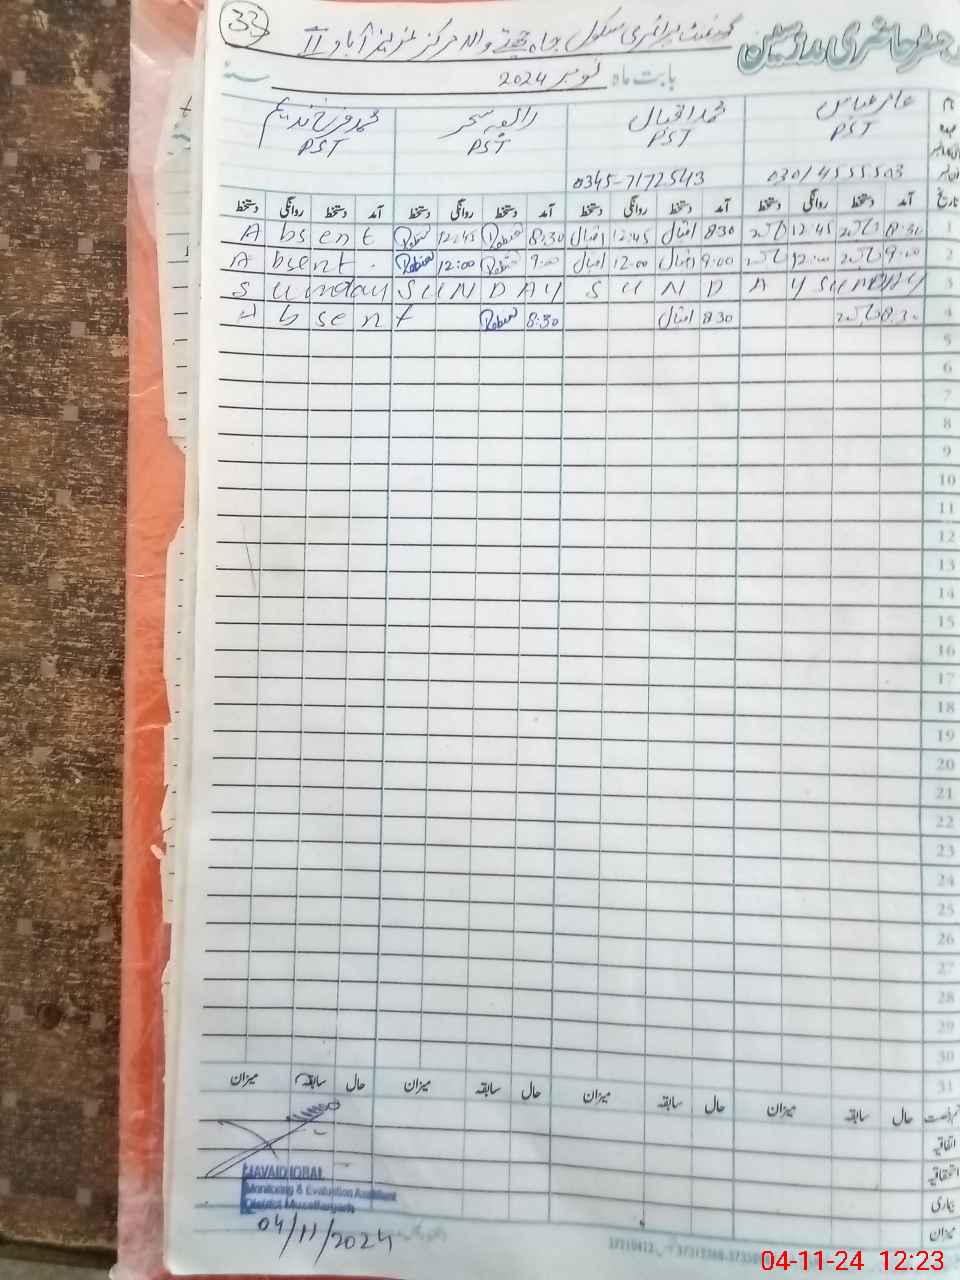 33
حاضری مدرسین
گورنمنٹ پرائمری سکول چاہ والہ مرکز عزیز آباد II
بابت ماہ نومبر 2024
نام عامر عباس محمد اقبال رابعہ سحر محمد فرخ ندیم
PST PST PST PST
0301 4555503 0345-7172543
تاریخ آمد دستخط روانگی دستخط آمد دستخط روانگی دستخط آمد دستخط روانگی دستخط آمد دستخط روانگی دستخط
A bsent Rabia 12:45 Rabia 8:30 اقبال 12:45 اقبال 8 30 12 45 8:30 1
A bsent. Rabia 12:00 Rabia 9:00 اقبال 12 00 اقبال 9:00 12:00 9:00 2
Sunday SUNDAY SUNDAY SUNDAY 3
A bsent Rabia 8:30 اقبال 8 30 8:30 4
5
6
7
8
9
10
11
12
13
14
15
16
17
18
19
20
21
22
23
24
25
26
27
28
29
30
31
حال سابقہ میزان حال سابقہ میزان حال سابقہ میزان حال سابقہ میزان
اتفاقیہ
استحقاقیہ
بیماری
میزان
JAVAID IQBAL
Monitoring & Evaluation Assistant
District Muzaffargarh
04/11/2024
04-11-24 12:23